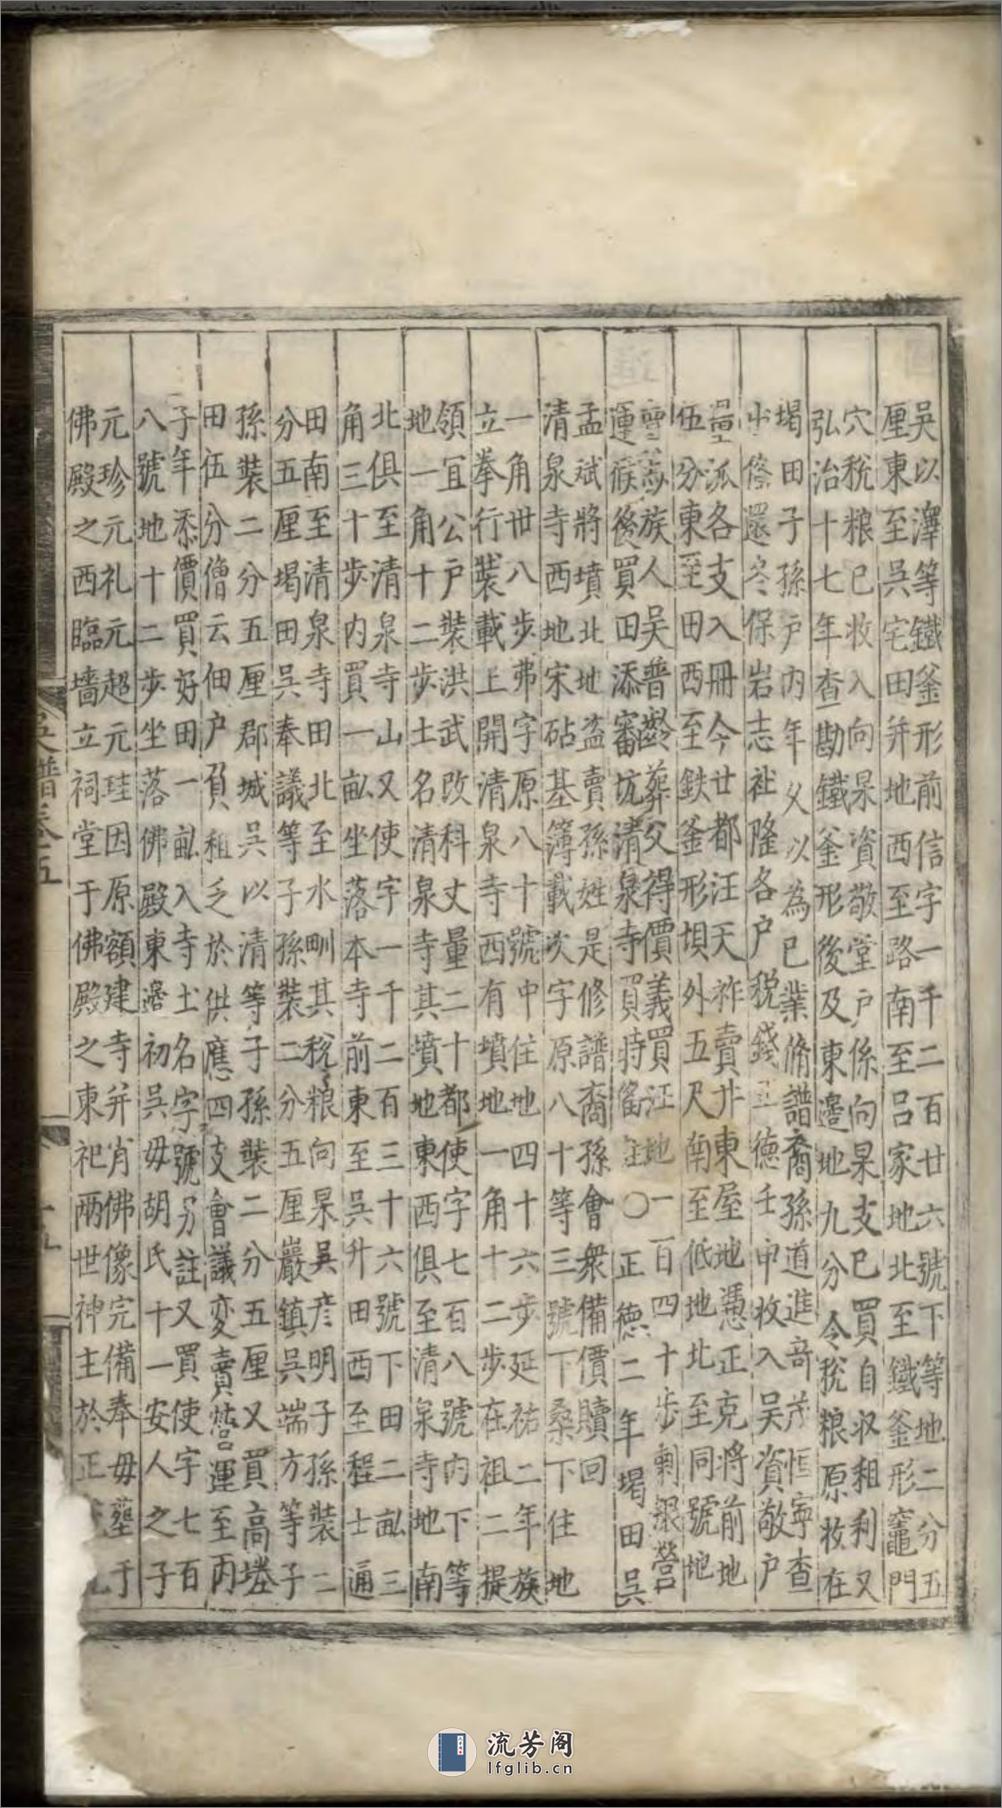 吳以澤等鐵釜形前信字一千二百廿六號下等地二分五
厘東至吳宅田并地西至路南至呂家地北至鐵釜形竈門
穴稅粮已收入向杲資敬堂戶係向杲支已買自収租利又
弘治十七年查勘鐵釜形後及東邊地九分令稅粮原收在
堨田子孫戶內年乂以為已業脩譜裔孫道進竒茂恒寧查
出條還冬保岩志社隆各戶稅錢正德壬申收入吳資敬戶
量派各支入冊今廿都汪天祚賣廾東屋地憑正克將前地
伍分東至田西至鉄釜形坝外五尺南至低地北至同號地
族人吳普齡葬父得價義買汪地一百四十步剩銀營
運候後買田添審坑清泉寺買〇正德二年堨田吳
孟斌將墳北地盗賣孫姓是修譜裔孫會衆備價贖回
清泉寺西地宋砧基簿載次字原八十等三號下桑下住地
一角卅八步弗字原八十號中住地四十六步延祐二年族
立拳行裝載上開清泉寺西有墳地一角十二步在祖二提
領冝公戶裝洪武改科丈量二十都使字七百八號內下等
地一角十二步土名清泉寺其墳地東西俱至清泉寺地南
北俱至清泉寺山又使字一千二百三十六號下田二畝三
角三十步內買一畝坐落本寺前東至吳升田西至程士通
田南至清泉寺田北至水圳其稅粮向杲吳彦明子孫裝二
分五厘堨田吳奉議等子孫裝二分五厘巖鎮吳端方等子
孫裝二分五厘郡城吳以清等子孫裝二分五厘又買高塔
田伍分僧云佃戶負租乏於供應四支會議変賣營運至丙
子年添價買好田一畝入寺土名字號另註又買使字七百
八號地十二步坐落佛殿東邊初吳毋胡氏十一安人之子
元珍元礼元超元珪因原額建寺并肖佛像完備奉毋塟于
佛殿之西臨墻立祠堂于佛殿之東祀兩世神主於正
吳譜卷五
流芳阁
lfglib.cn